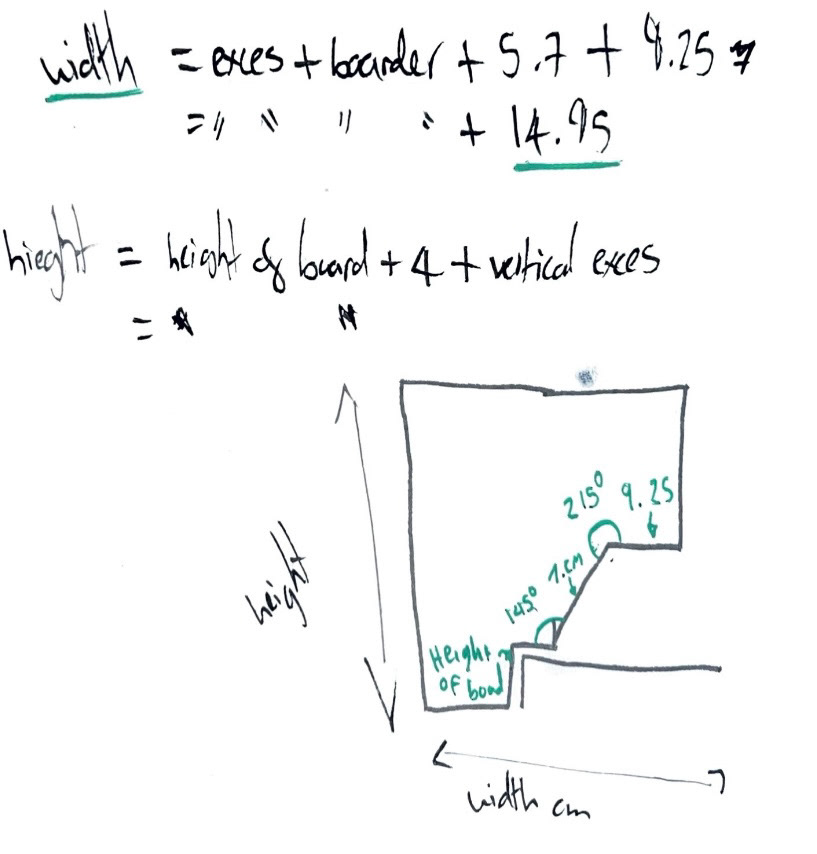 width = exces + boarder + 5.7 + 9.25
= " " " " + 14.95
hieght = height of board + 4 + vertical exces
= " "
215° 9.25
7.cm
145°
Height
of boad
height
width cm